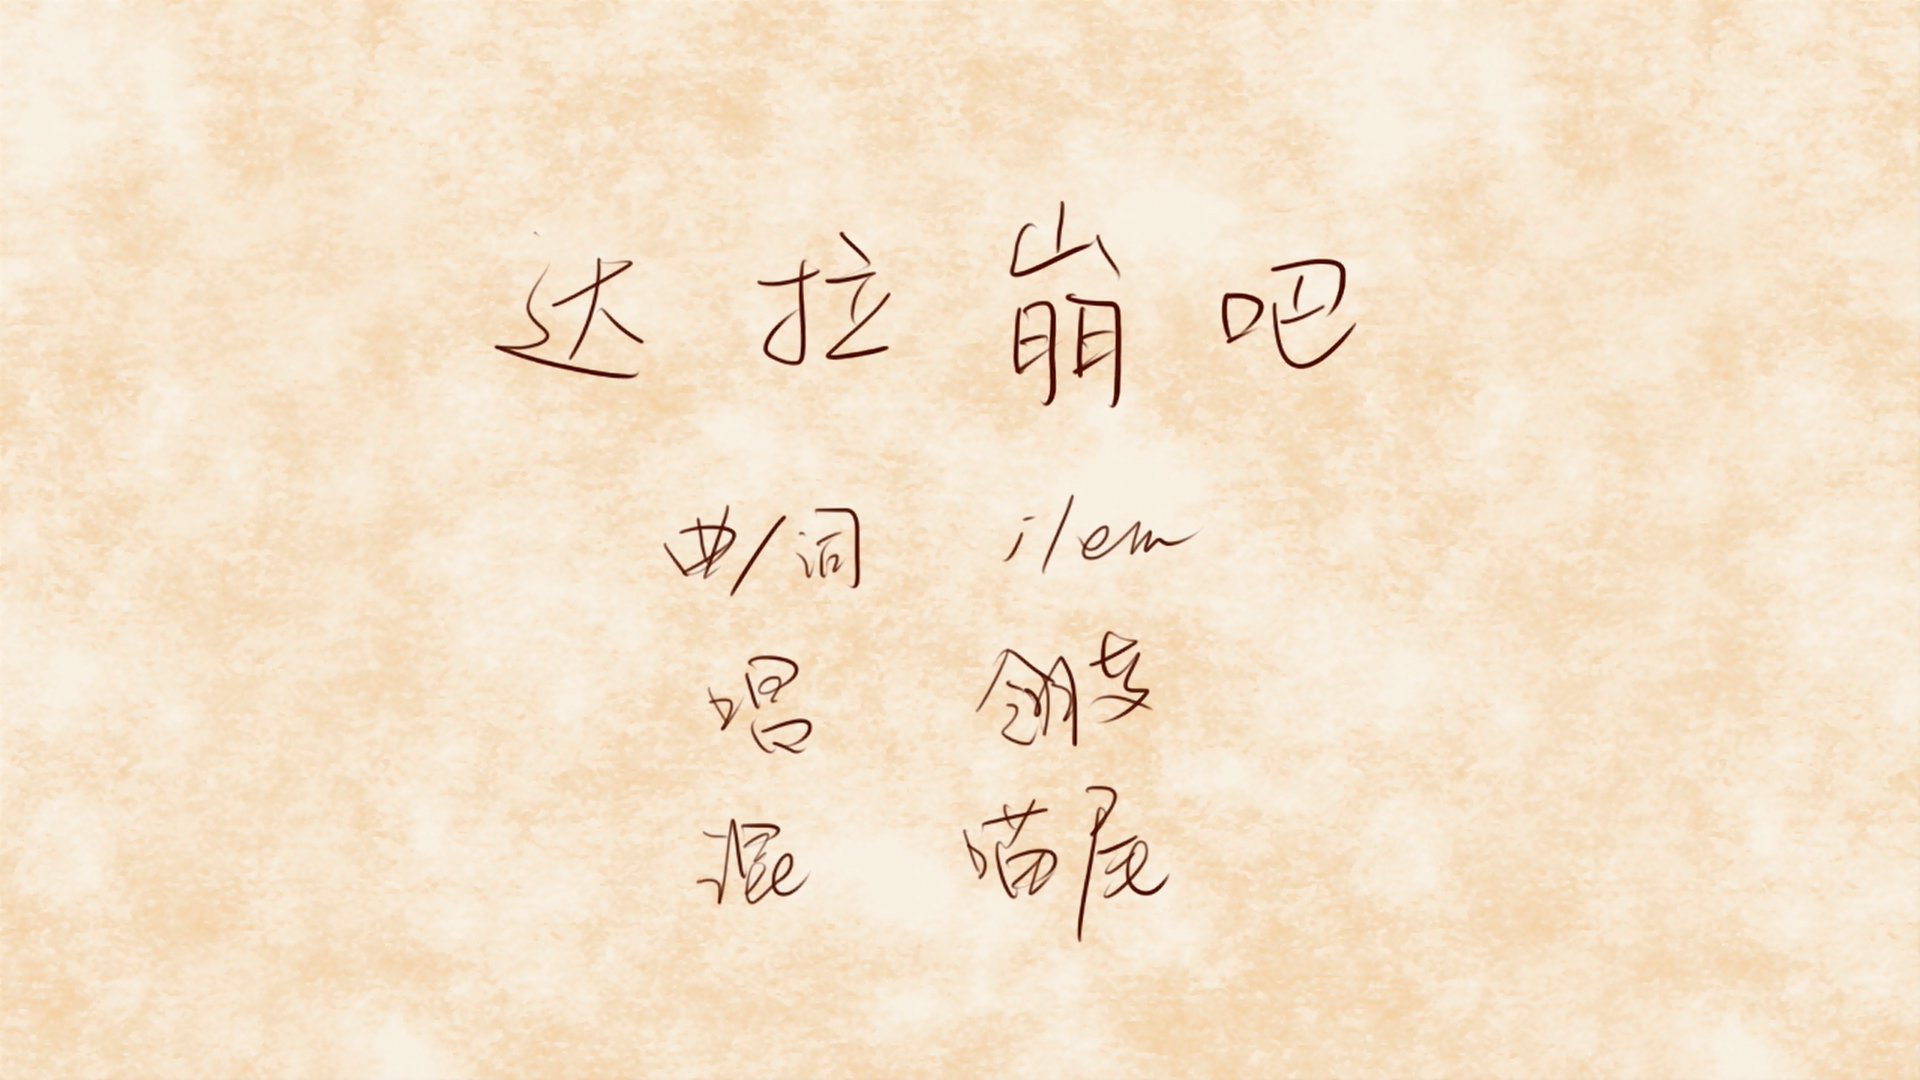 达拉崩吧
曲/词 ilem
唱 翎
混 喵尾